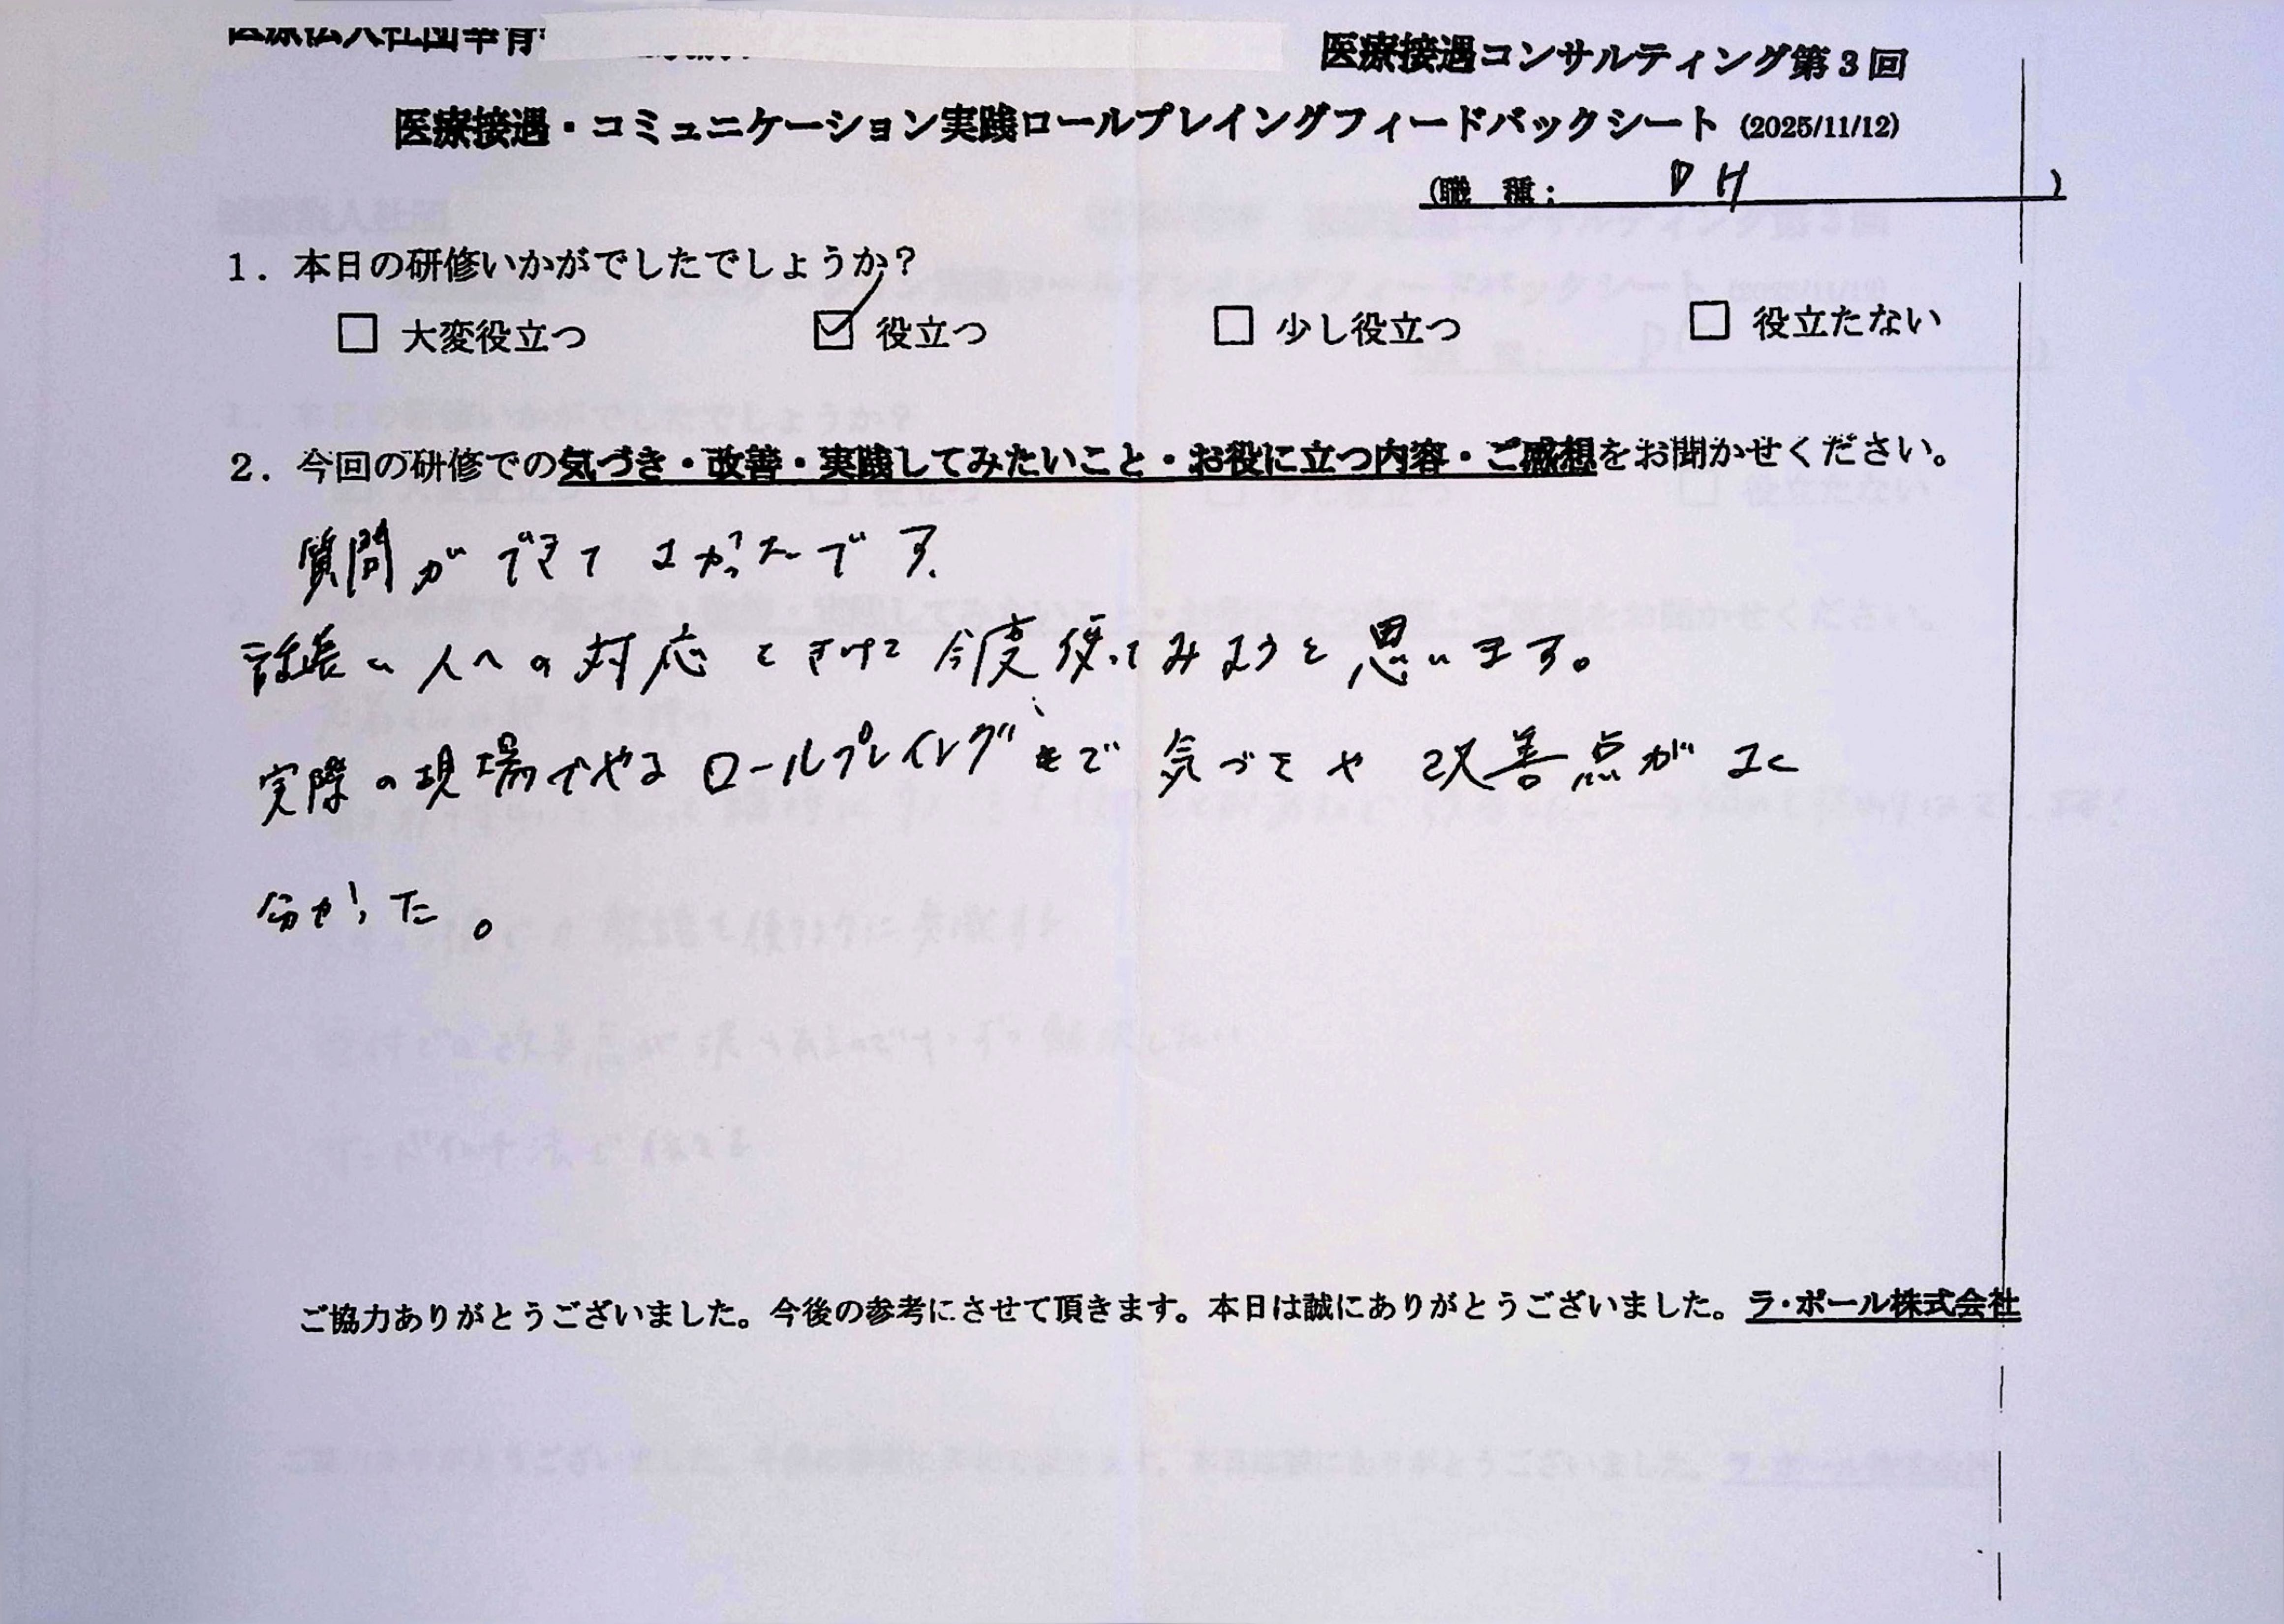 医療法人社団幸育
医療接遇コンサルティング第3回
医療接遇・コミュニケーション実践ロールプレイングフィードバックシート (2025/11/12)
(職 種: DH )
1. 本日の研修いかがでしたでしょうか?
□ 大変役立つ ☑ 役立つ □ 少し役立つ □ 役立たない
2. 今回の研修での気づき・改善・実践してみたいこと・お役に立つ内容・ご感想をお聞かせください。
質問ができてよかったです。
話長い人への対応ときけて今度使ってみようと思います。
実際の現場でやるロールプレイングで気づきや改善点がよく
分かった。
ご協力ありがとうございました。今後の参考にさせて頂きます。本日は誠にありがとうございました。ラ・ポール株式会社